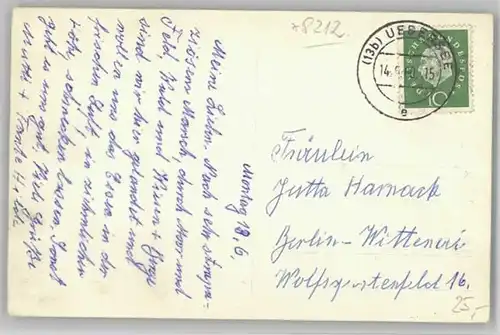 *8212
(13b) UEBERSEE
10
Montag 13.6.
Meine Lieben. Nach sehr strapa-
ziösem Marsch, durch Moor und
Feld, Wald und Wiesen + Berge
sind wir hier gelandet und
uns das Essen in der
frischen Luft, in
schmecken lassen. Sonst
geht es uns gut. Viele Grüße
Mutti + Tante
Fräulein
Jutta Harnack
Berlin-Wittenau
Wolfsgartenfeld 16.
25,-